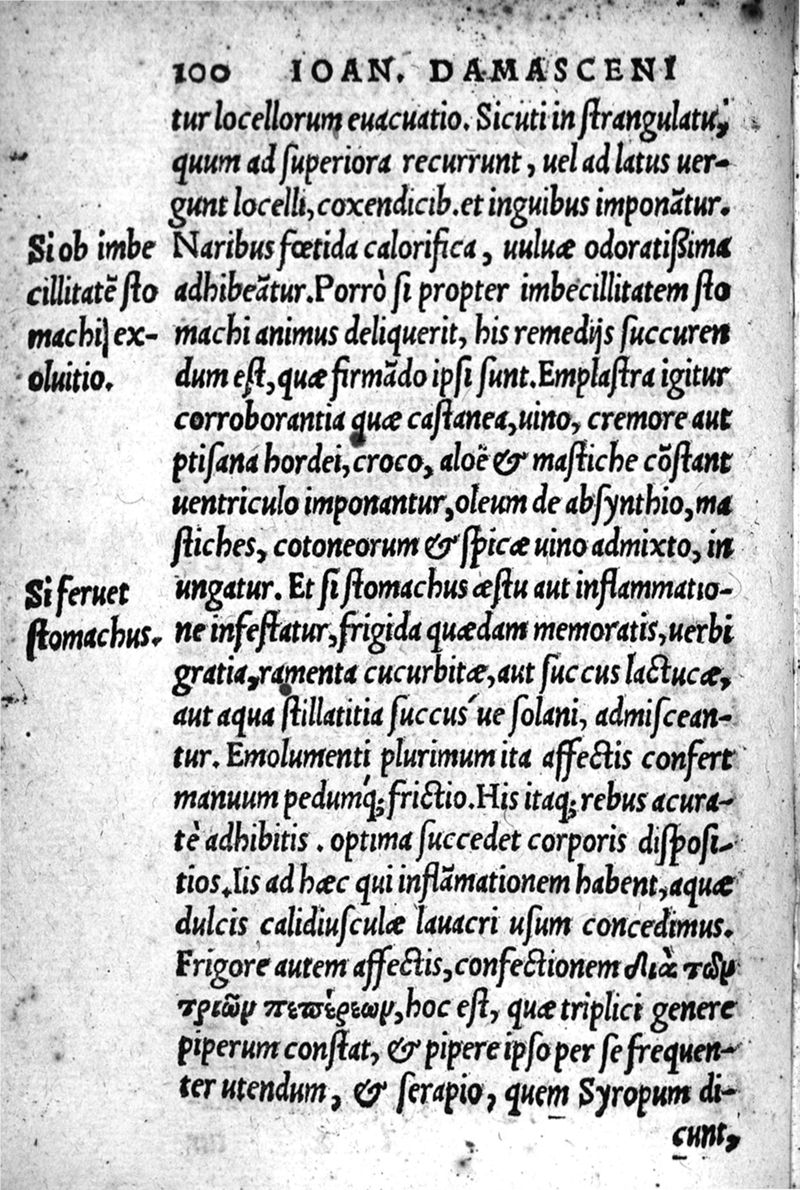 100 IOAN. DAMASCENI
tur locellorum euacuatio. Sicuti in strangulatu,
quum ad superiora recurrunt, uel ad latus uer-
gunt locelli, coxendicib. et inguibus imponãtur.
Si ob imbe
cillitatẽ sto
machi ex-
oluitio.
Naribus fœtida calorifica, uuluæ odoratißima
adhibeãtur. Porrò si propter imbecillitatem sto
machi animus deliquerit, his remedijs succuren
dum est, quæ firmãdo ipsi sunt. Emplastra igitur
corroborantia quæ castanea, uino, cremore aut
ptisana hordei, croco, aloë & mastiche cõstant
uentriculo imponantur, oleum de absynthio, ma
stiches, cotoneorum & spicæ uino admixto, in
Si feruet
stomachus.
ungatur. Et si stomachus æstu aut inflammatio-
ne infestatur, frigida quædam memoratis, uerbi
gratia, ramenta cucurbitæ, aut succus lactucæ,
aut aqua stillatitia succus´ue solani, admiscean-
tur. Emolumenti plurimum ita affectis confert
manuum pedumq́; frictio. His itaq; rebus acura-
tè adhibitis . optima succedet corporis disposi-
tios. Iis ad hæc qui inflãmationem habent, aquæ
dulcis calidiusculæ lauacri usum concedimus.
Frigore autem affectis, confectionem διὰ τῶν
τριῶν πεπέρεων, hoc est, quæ triplici genere
piperum constat, & pipere ipso per se frequen-
ter utendum, & serapio, quem Syropum di-
cunt,